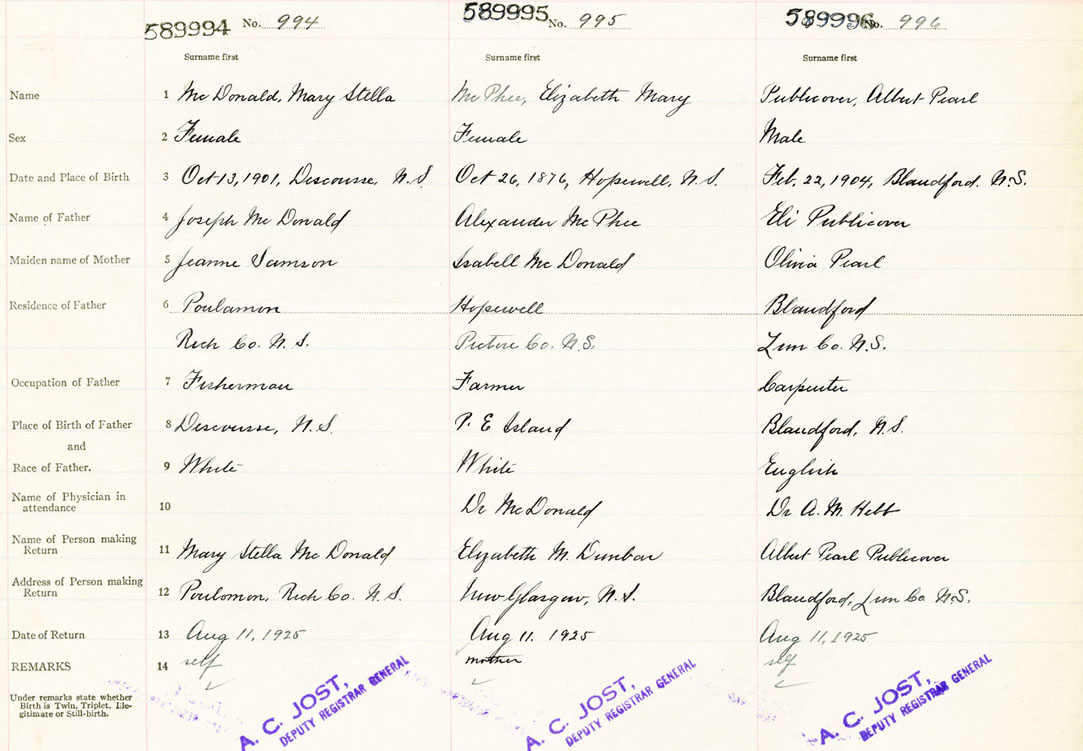 589994 No. 994 589995 No. 995 589996 No. 996
Surname first Surname first Surname first
Name 1 McDonald, Mary Stella McPhee, Elizabeth Mary Publicover, Albert Pearl
Sex 2 Female Female Male
Date and Place of Birth 3 Oct 13, 1901, Descousse, N.S. Oct 26, 1876, Hopewell, N.S. Feb. 22, 1904, Blandford. N.S.
Name of Father 4 Joseph McDonald Alexander McPhee Eli Publicover
Maiden name of Mother 5 Jeanne Samson Isabell McDonald Olivia Pearl
Residence of Father 6 Poulamon Hopewell Blandford
Rich Co. N.S. Pictou Co. N.S. Lun Co. N.S.
Occupation of Father 7 Fisherman Farmer Carpenter
Place of Birth of Father 8 Descousse, N.S. P. E Island Blandford, N.S.
and
Race of Father. 9 White White English
Name of Physician in
attendance 10 Dr McDonald Dr A. M. Hebb
Name of Person making
Return 11 Mary Stella McDonald Elizabeth M. Dunbar Albert Pearl Publicover
Address of Person making
Return 12 Poulomon, Rich Co. N.S. New Glasgow, N.S. Blandford, Lun Co N.S.
Date of Return 13 Aug 11, 1925 Aug 11. 1925 Aug 11, 1925
REMARKS 14 self mother self
Under remarks state whether
Birth is Twin, Triplet, Ille-
gitimate or Still-birth.
A. C. JOST, A. C. JOST, A. C. JOST,
DEPUTY REGISTRAR GENERAL DEPUTY REGISTRAR GENERAL DEPUTY REGISTRAR GENERAL